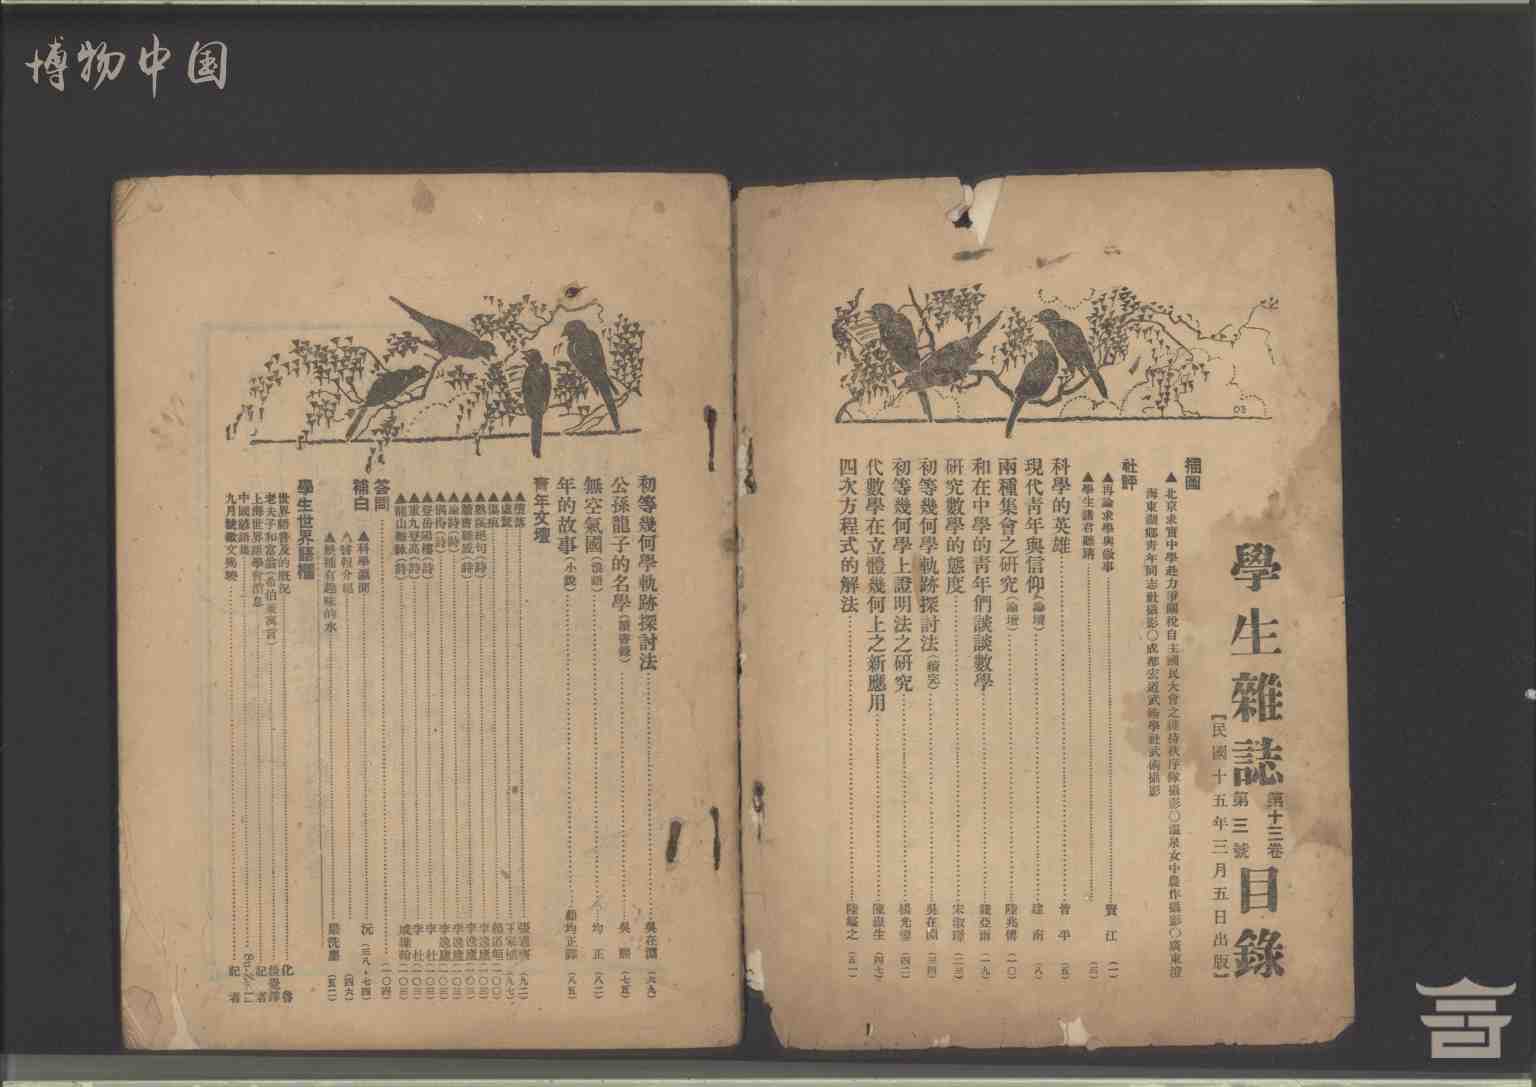 博物中国
學生雜誌
第十三卷
第三號
目錄
【民國十五年三月五日出版】
插圖
▲北京求實中學赴力爭關稅自主國民大會之維持秩序隊攝影○溫泉女中農作攝影○廣東澄
海東湖鄉青年同志社攝影○成都宏道武術學社武術攝影
社評
▲再論求學與做事 賢江(一)
▲學生諸君聽請 (三)
科學的英雄 曾平(五)
現代青年與信仰(論壇) 建南(八)
兩種集會之研究(論壇) 陸兆傳(一〇)
和在中學的青年們談談數學 錢亞雨(一九)
研究數學的態度 宋淑璋(二三)
初等幾何學軌跡探討法(續完) 吳在淵(三四)
初等幾何學上證明法之研究 (四二)
代數學在立體幾何上之新應用 陳嶽生(四七)
四次方程式的解法 陸縱之(五一)
初等幾何學軌跡探討法 吳在淵(六九)
公孫龍子的名學(讀書錄) 吳熙(七五)
無空氣國(漢語) 均正(八二)
年的故事(小說) 顧均正譯(八五)
青年文壇
▲墮落 (九二)
▲虛驚 (九七)
▲傷痕 (一〇〇)
絕句(詩) 李逸廬(一〇三)
▲讀書雜感(詩) 李逸廬(一〇三)
▲論詩(詩) 李逸廬(一〇三)
▲偶得(詩) 李逸廬(一〇三)
▲登岳陽樓(詩) 李杜(一〇三)
▲重九登高(詩) 李杜(一〇三)
▲龍山雜詠(詩) (一〇三)
答問 (一〇四)
補白
▲科學瀛聞 沅(三八,七四)
(四六)
▲幾種有趣味的水 嚴洗塵(五二)
學生世界語欄
世界語普及的概況 化魯
老夫子和富翁(希伯來寓言)
上海世界語學會消息 記者
中國諺語集
九月號徵文揭曉 記者